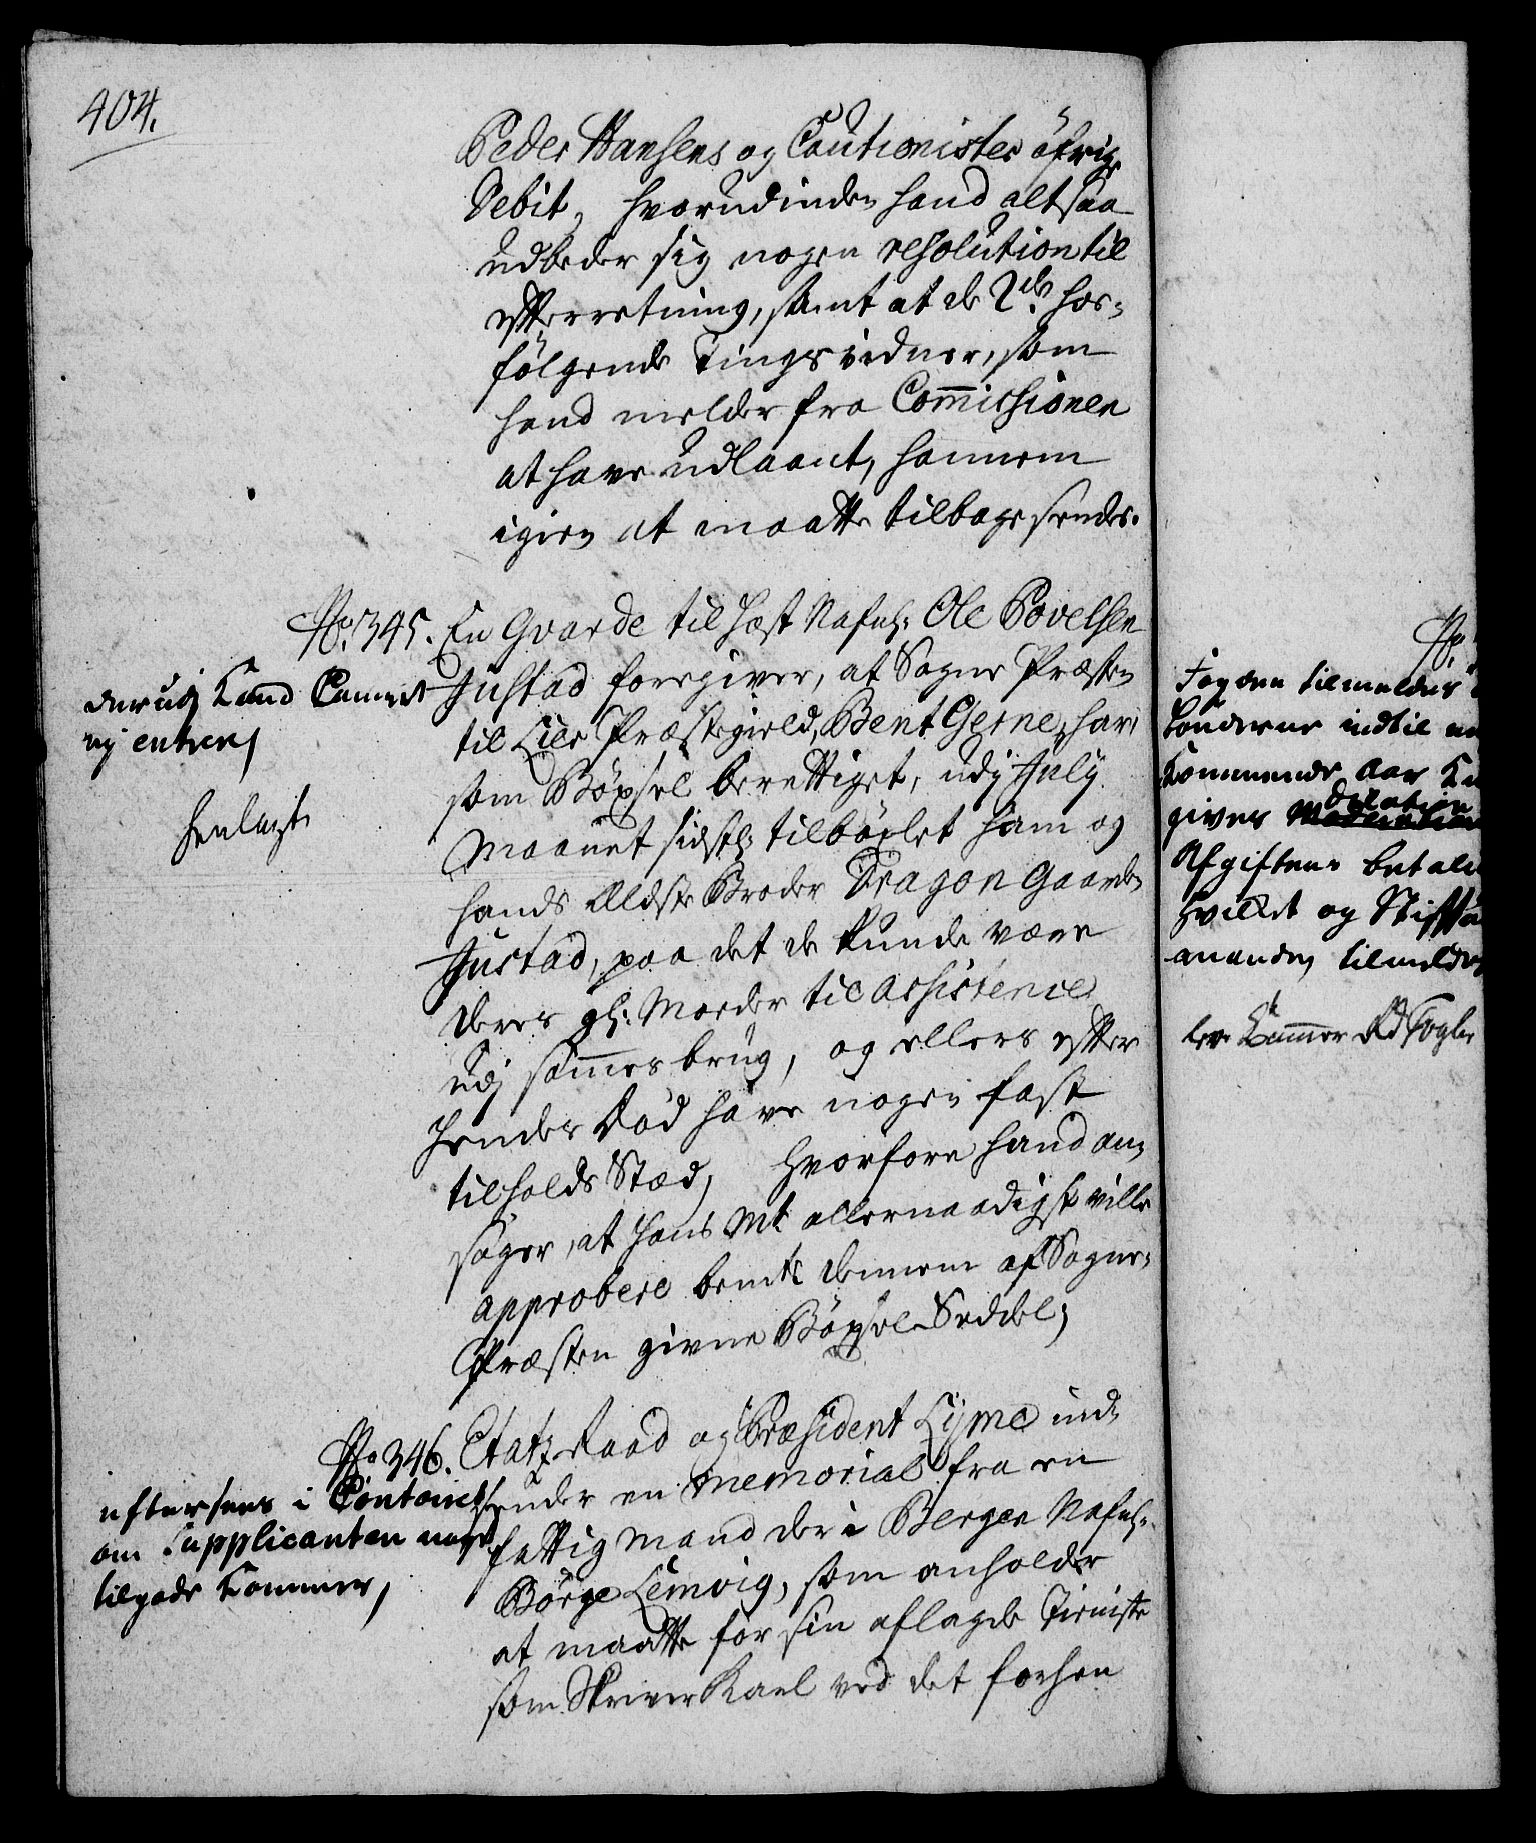 404.
Peder Hansens og Cautionister öfrige
Debit, hvorudinden hand altsaa
udbeder sig nogen resolution til
efterretning, samt at de 2de hos-
fölgende Tingsvidner, som
hand melder fra Commissionen
at have udlaant, hannem
igien at maatte tilbage sendes.
No. 345. En Gvarde til Hest Nafnl: Ole Povelsen
Justad foregiver, at Sogne Præsten
til Lier Præstegield, Bent Gerne, har,
som Böxsel berettiget, udj July
Maanet sidstl: tilböxlet ham og
hands Eldste Broder Dragon Gaarden
Justad, paa det de kunde være
deres gl: Moeder til Assistence
udj sammes brug, og ellers efter
hendes Död have nogen fast
tilholds Stæd, hvorfore hand an-
söger, at Hans Mt: allernaadigst ville
approbere bemte dennem af Sogne-
Præsten givne Böxsel Seddel;
derudj kand Cammeret
ej entrere,
henlagt
No 346. Etatz Raad og Præsident Lyme ind-
sender en Memorial fra en
fattig Mand der i Bergen Nafnl:
Börge Lemvig, som anholder
at maatte for sin aflagde Tieniste
som Skriver Karl ved det forhen
eftersees i Contoiret
om Supplicanten noget
tilgode kommer,
No.
Fogden tilmeldes
bönderne indtil
kommende Aar
gives Moderation
dilation
Afgiftens betal
hvilket og Stiftsa
manden tilmeldes
lev: Kammer Rd Fogh